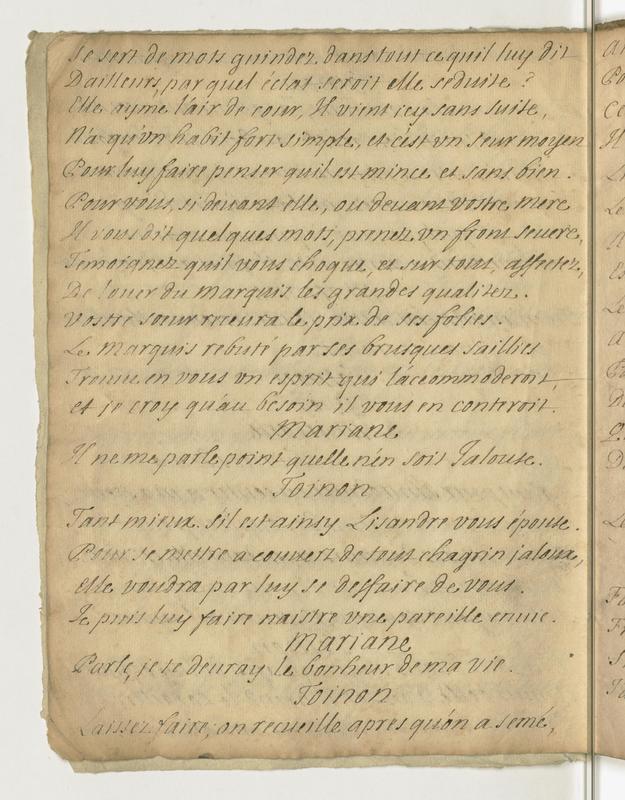 Se sert de mots guindez dans tout ce quil luy dit
Dailleurs, par quel éclat seroit elle seduite ?
Elle ayme l'air de cour, Il vient icy sans suite,
N'a qu'vn habit fort simple, et c'est vn seur moyen
Pour luy faire penser quil est mince et sans bien.
Pour vous, si deuant elle, ou deuant vostre mere
Il vous dit quelques mots, prenez vn front seuere,
Temoignez quil vous choque, et sur tout, affectez,
De louer du Marquis les grandes qualitez.
Vostre soeur receura le prix de ses folies.
Le Marquis rebuté par ses brusques saillies
Treuue en vous vn esprit qui l'accommoderoit,
et je croy qu'au besoin il vous en conteroit.
Mariane
Il ne me parle point quelle n'en soit Jalouse.
Toinon
Tant mieux. s'il est ainsy Lisandre vous épouse.
Pour se mettre a couuert de tout chagrin jaloux,
elle voudra par luy se deffaire de vous.
Je puis luy faire naistre vne pareille enuie.
Mariane
Parle, je te deuray le bonheur de ma vie.
Toinon
Laissez faire, on recueille apres qu'on a semé,